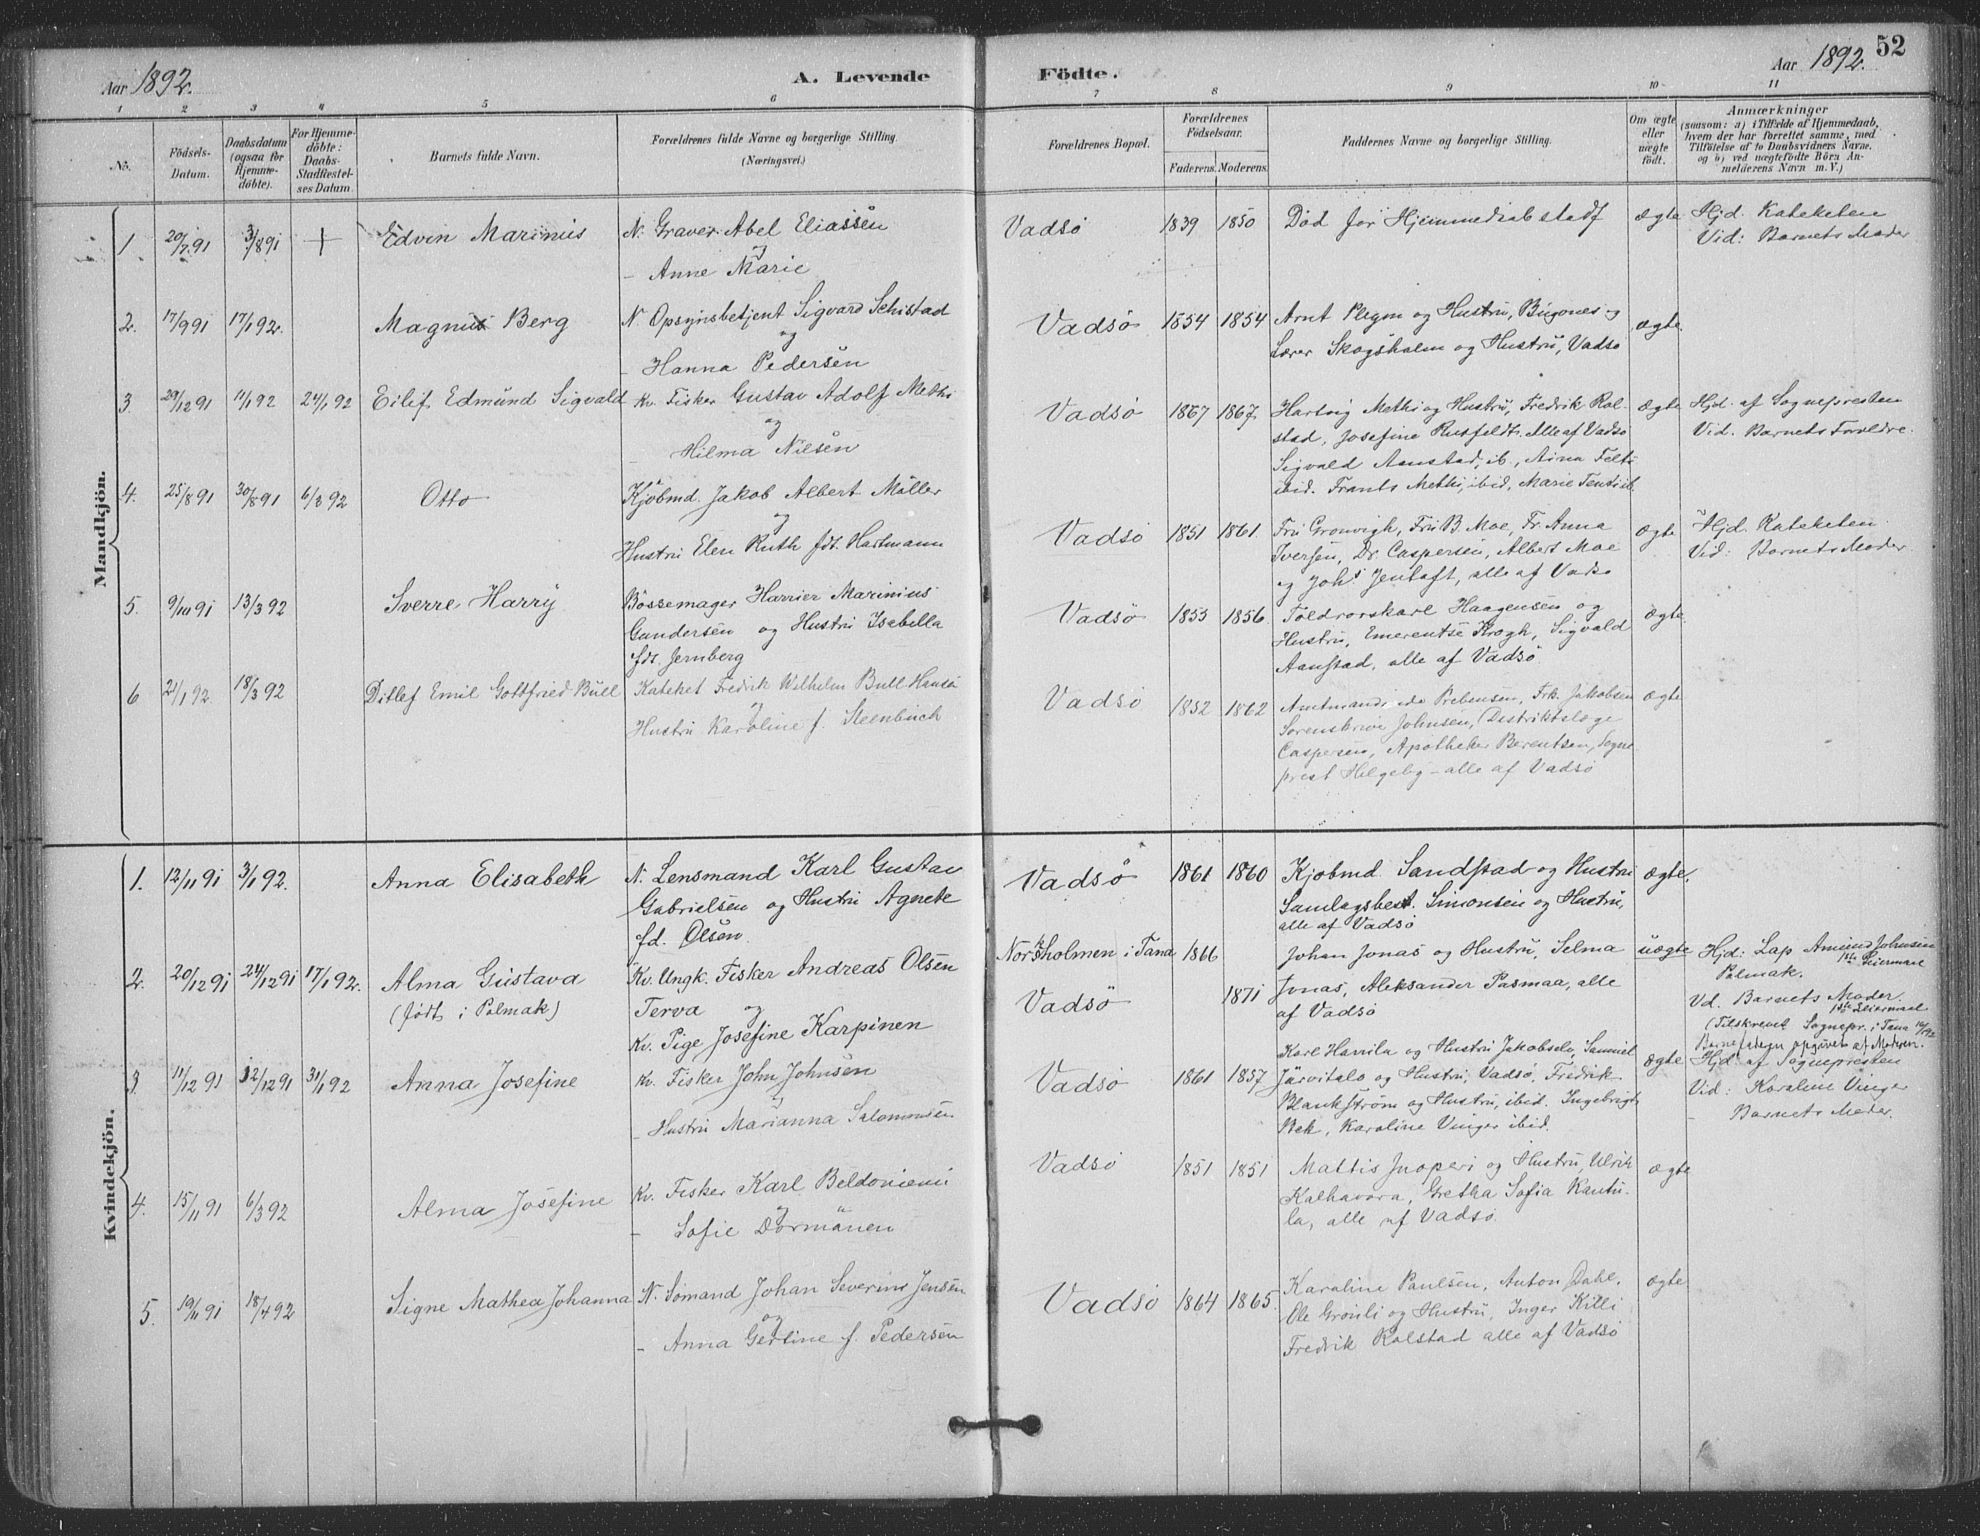 Aar 1892.
A. Levende Födte.
Aar 1892.
52
1 2 3 4 5 6 7 8 9 10 11
No.
Födsels-Datum.
Daabsdatum (ogsaa for Hjemme-döbte).
For Hjemme-döbte: Daabs-Stadfæstel-ses Datum.
Barnets fulde Navn.
Forældrenes fulde Navne og borgerlige Stilling. (Næringsvei.)
Forældrenes Bopæl.
Forældrenes Födselsaar.
Faderens. Moderens.
Faddernes Navne og borgerlige Stilling.
Om ægte eller uægte födt.
Anmærkninger
(saasom: a) i Tilfælde af Hjemmedaab, hvem der har forrettet samme, med Tilföielse af to Daabsvidners Navne, og b) ved uægtefödte Börn An-melderens Navn m. V.)
Mandkjön.
1. 20/7 91 3/8 91 + Edvin Marinus
N. Graver Abel Eliassen
og
- Anne Marie
Vadsö 1839 1850 Död för Hjemmedaab stadf ægte
Hjd. Kateketen
Vid: Barnets Moder
2. 17/9 91 17/1 92. Magnus Berg
N Opsynsbetjent Sigvard Schistad
og
- Hanna Pedersen
Vadsö 1854 1854
Arnt Pleym og Hustru, Bugönes og
Lærer Skogsholm og Hustru, Vadsö
ægte
3. 29/12 91 11/1 92 24/1 92 Eilif Edmund Sigvald
Kv. Fisker Gustav Adolf Methi
og
- Hilma Nilsen
Vadsö 1867 1867.
Hartvig Methi og Hustru, Fredrik Rol-
stad, Josefine Rusfeldt. Alle af Vadsö
Sigvald Aanstad, ib., Aina
ibid. Frants Methi, ibid, Marie
ægte
Hjd. af Sognepresten
Vid. Barnets Forældre.
4. 25/8 91 30/8 91 6/3 92 Otto
Kjöbmd. Jakob Albert Möller
og
Hustru Elen Ruth fdt. Hartmann
Vadsö 1851 1861.
Fru Gronvigh, Fru B Moe, Fr. Anna
Iversen, Dr Caspersen, Albert Moe
og Johs Jentoft, alle af Vadsö
ægte
Hjd. Kateketen.
Vid: Barnets Moder.
5. 9/10 91 13/3 92 Sverre Harry
Bössemager Harrier Marinius
Gundersen og Hustru Isabella
fdt. Jernberg
Vadsö 1853 1856
Toldrorskarl Haagensen og
Hustru, Emerentse Krogh, Sigvald
Aanstad, alle af Vadsö
ægte
6 2/1 92. 18/3 92 Ditlef Emil Gottfried Bull
Kateket Fredrik Wilhelm Bull Hansen
og
Hustru Karoline f. Steenbuch
Vadsö 1852 1862
Amtmand Prebensen, Frk. Jakobsen
Sorenskriver Johnsen, Distriktslæge
Caspersen, Apotheker Berentsen, Sogne-
prest Helgeby - alle af Vadsö
ægte
Kvindekjön.
1. 12/11 91 3/1 92. Anna Elisabeth
N. Lensmand Karl Gustav
Gabrielsen og Hustru Agnete
fd. Olsen
Vadsö 1861 1860
Kjöbmd. Sandstad og Hustru
Samlagsbest. Simonsen og Hustru,
alle af Vadsö
ægte.
2. 20/12 91 24/12 91 17/1 92. Alma Gustava
(födt i Polmak)
Kv. Ungk. Fisker Andreas Olsen
Terva og
Kv. Pige Josefine Karpinen
Norskholmen i Tana 1866
Vadsö 1871
Johan Jonas og Hustru, Selma
Jonas, Aleksander Pasmaa, alle
af Vadsö
uægte
Hjd: Lap Amund Johnsen
Polmak. 1ste Leiermaal
Vd. Barnets Moder.
1ste Leiermaal
(Tilskrevet Sognepr. i Tana
Barnefaderen opgivet af Moderen.
3 11/12 91 12/12 91 31/1 92 Anna Josefine
Kv. Fisker John Johnsen
og
- Hustru Marianna Salomonsen
Vadsö 1861 1857
Karl Harrila og Hustru Jakobselv, Samuel
Järvitalo og Hustru, Vadsö, Fredrik
Blankström og Hustru, ibid. Ingebrigt
Bek, Karoline Vinger ibid.
ægte
Hjd. af Sognepresten
Vid: Karoline Vinger
- Barnets Moder.
4. 15/11 91 6/3 92 Alma Josefine
Kv. Fisker Karl Beldoniemi
og
- Sofie Dormänen
Vadsö 1851 1851
Mattis Juoperi og Hustru, Ulrik
Kalhavara, Gretha Sofia Kantu-
la, alle af Vadsö
ægte
5. 19/11 91 18/4 92 Signe Mathea Johanna
N. Sömand Johan Severin Jensen
og
- Anna Gertine f. Pedersen
Vadsö 1864 1865.
Karoline Paulsen, Anton Dahl,
Ole Grönli og Hustru, Inger Killi
Fredrik Rolstad alle af Vadsö
ægte